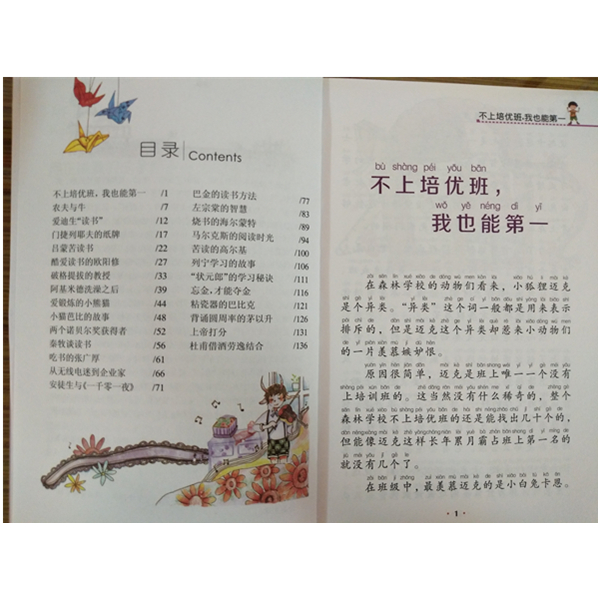 目录 Contents
不上培优班，我也能第一 /1
农夫与牛 /7
爱迪生“读书” /12
门捷列耶夫的纸牌 /17
吕蒙苦读书 /22
酷爱读书的欧阳修 /27
破格提拔的教授 /33
阿基米德洗澡之后 /39
爱锻炼的小熊猫 /44
小猫芭比的故事 /48
两个诺贝尔奖获得者 /52
秦牧谈读书 /56
吃书的张广厚 /61
从无线电迷到企业家 /66
安徒生与《一千零一夜》 /71
巴金的读书方法 /77
左宗棠的智慧 /83
烧书的海尔蒙特 /89
马尔克斯的阅读时光 /94
苦读的高尔基 /100
列宁学习的故事 /106
“状元郎”的学习秘诀 /111
忘金，才能夺金 /116
粘瓷器的巴比克 /121
背诵圆周率的茅以升 /126
上帝打分 /131
杜甫借酒劳逸结合 /136
不上培优班，我也能第一
bù shàng péi yōu bān
不上培优班，
wǒ yě néng dì yī
我也能第一
在森林学校的动物们看来，小狐狸迈克
是个异类。“异类”这个词一般都是用来表示
排斥的，但是迈克这个异类却惹来小动物们
的一片羡慕嫉妒恨。
原因很简单，迈克是班上唯一一个没有
上培训班的。这当然没有什么稀奇的，整个
森林学校不上培优班的还是能找出几十个的，
但能像迈克这样长年累月霸占班上第一名的
就没有几个了。
在班级中，最羡慕迈克的是小白兔卡恩。
·1·